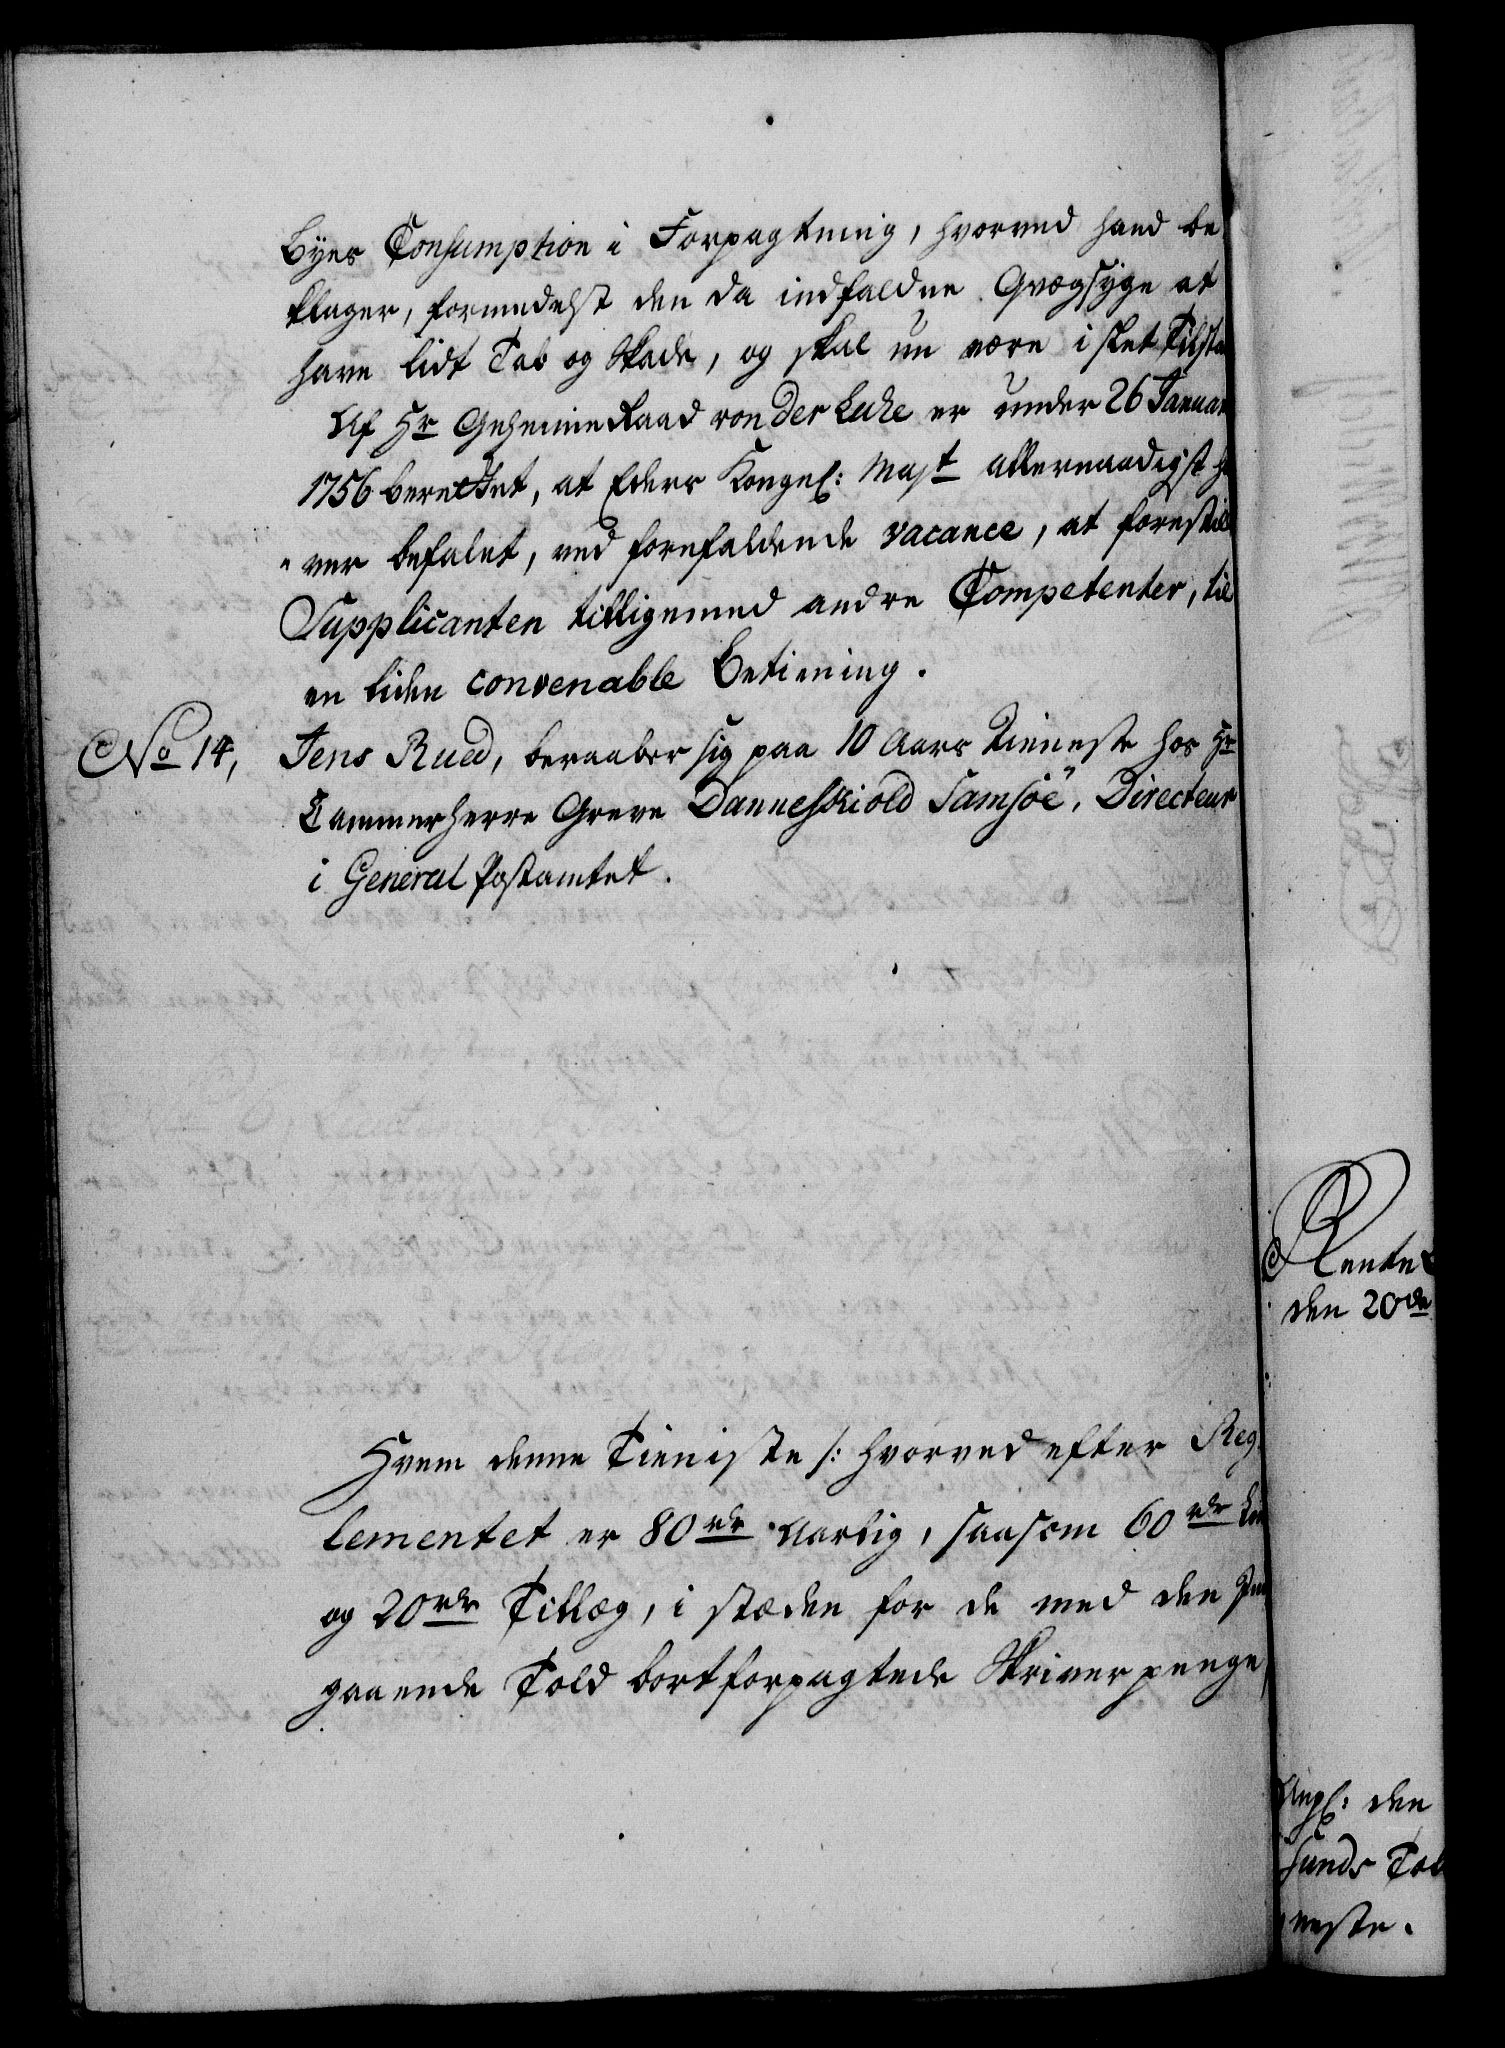 Byes Consumption i Forpagtning, hvorved hand be
klager, formedelst den da indfaldne Qvægsyge at
have lidt Tab og Skade, og skal nu være i slet Tilsta
Af Hr Geheime Raad von der Luhe er under 26 Januar
1756 berettet, at Eders Kongel: Mayt allernaadigst ha
ver befalet, ved forefaldende vacance, at forestille
Supplicanten tilligemed andre Competenter, til
en liden convenable Betiening.
No 14, Jens Rued, beraaber sig paa 10 Aars Tieneste hos Hr
Cammerherre Greve Danneskiold Samsöe, Directeur
i General Postamtet.
Hvem denne Tieniste /: hvorved efter Reg
lementet er 80 rdr Aarlig, saasom 60 rdr
og 20 rdr Tillæg, i stæden for de med den
gaaende Told bortforpagtede Skriverpenge,
Rente
den 20de
Angl: den
sunds Tol
neste.